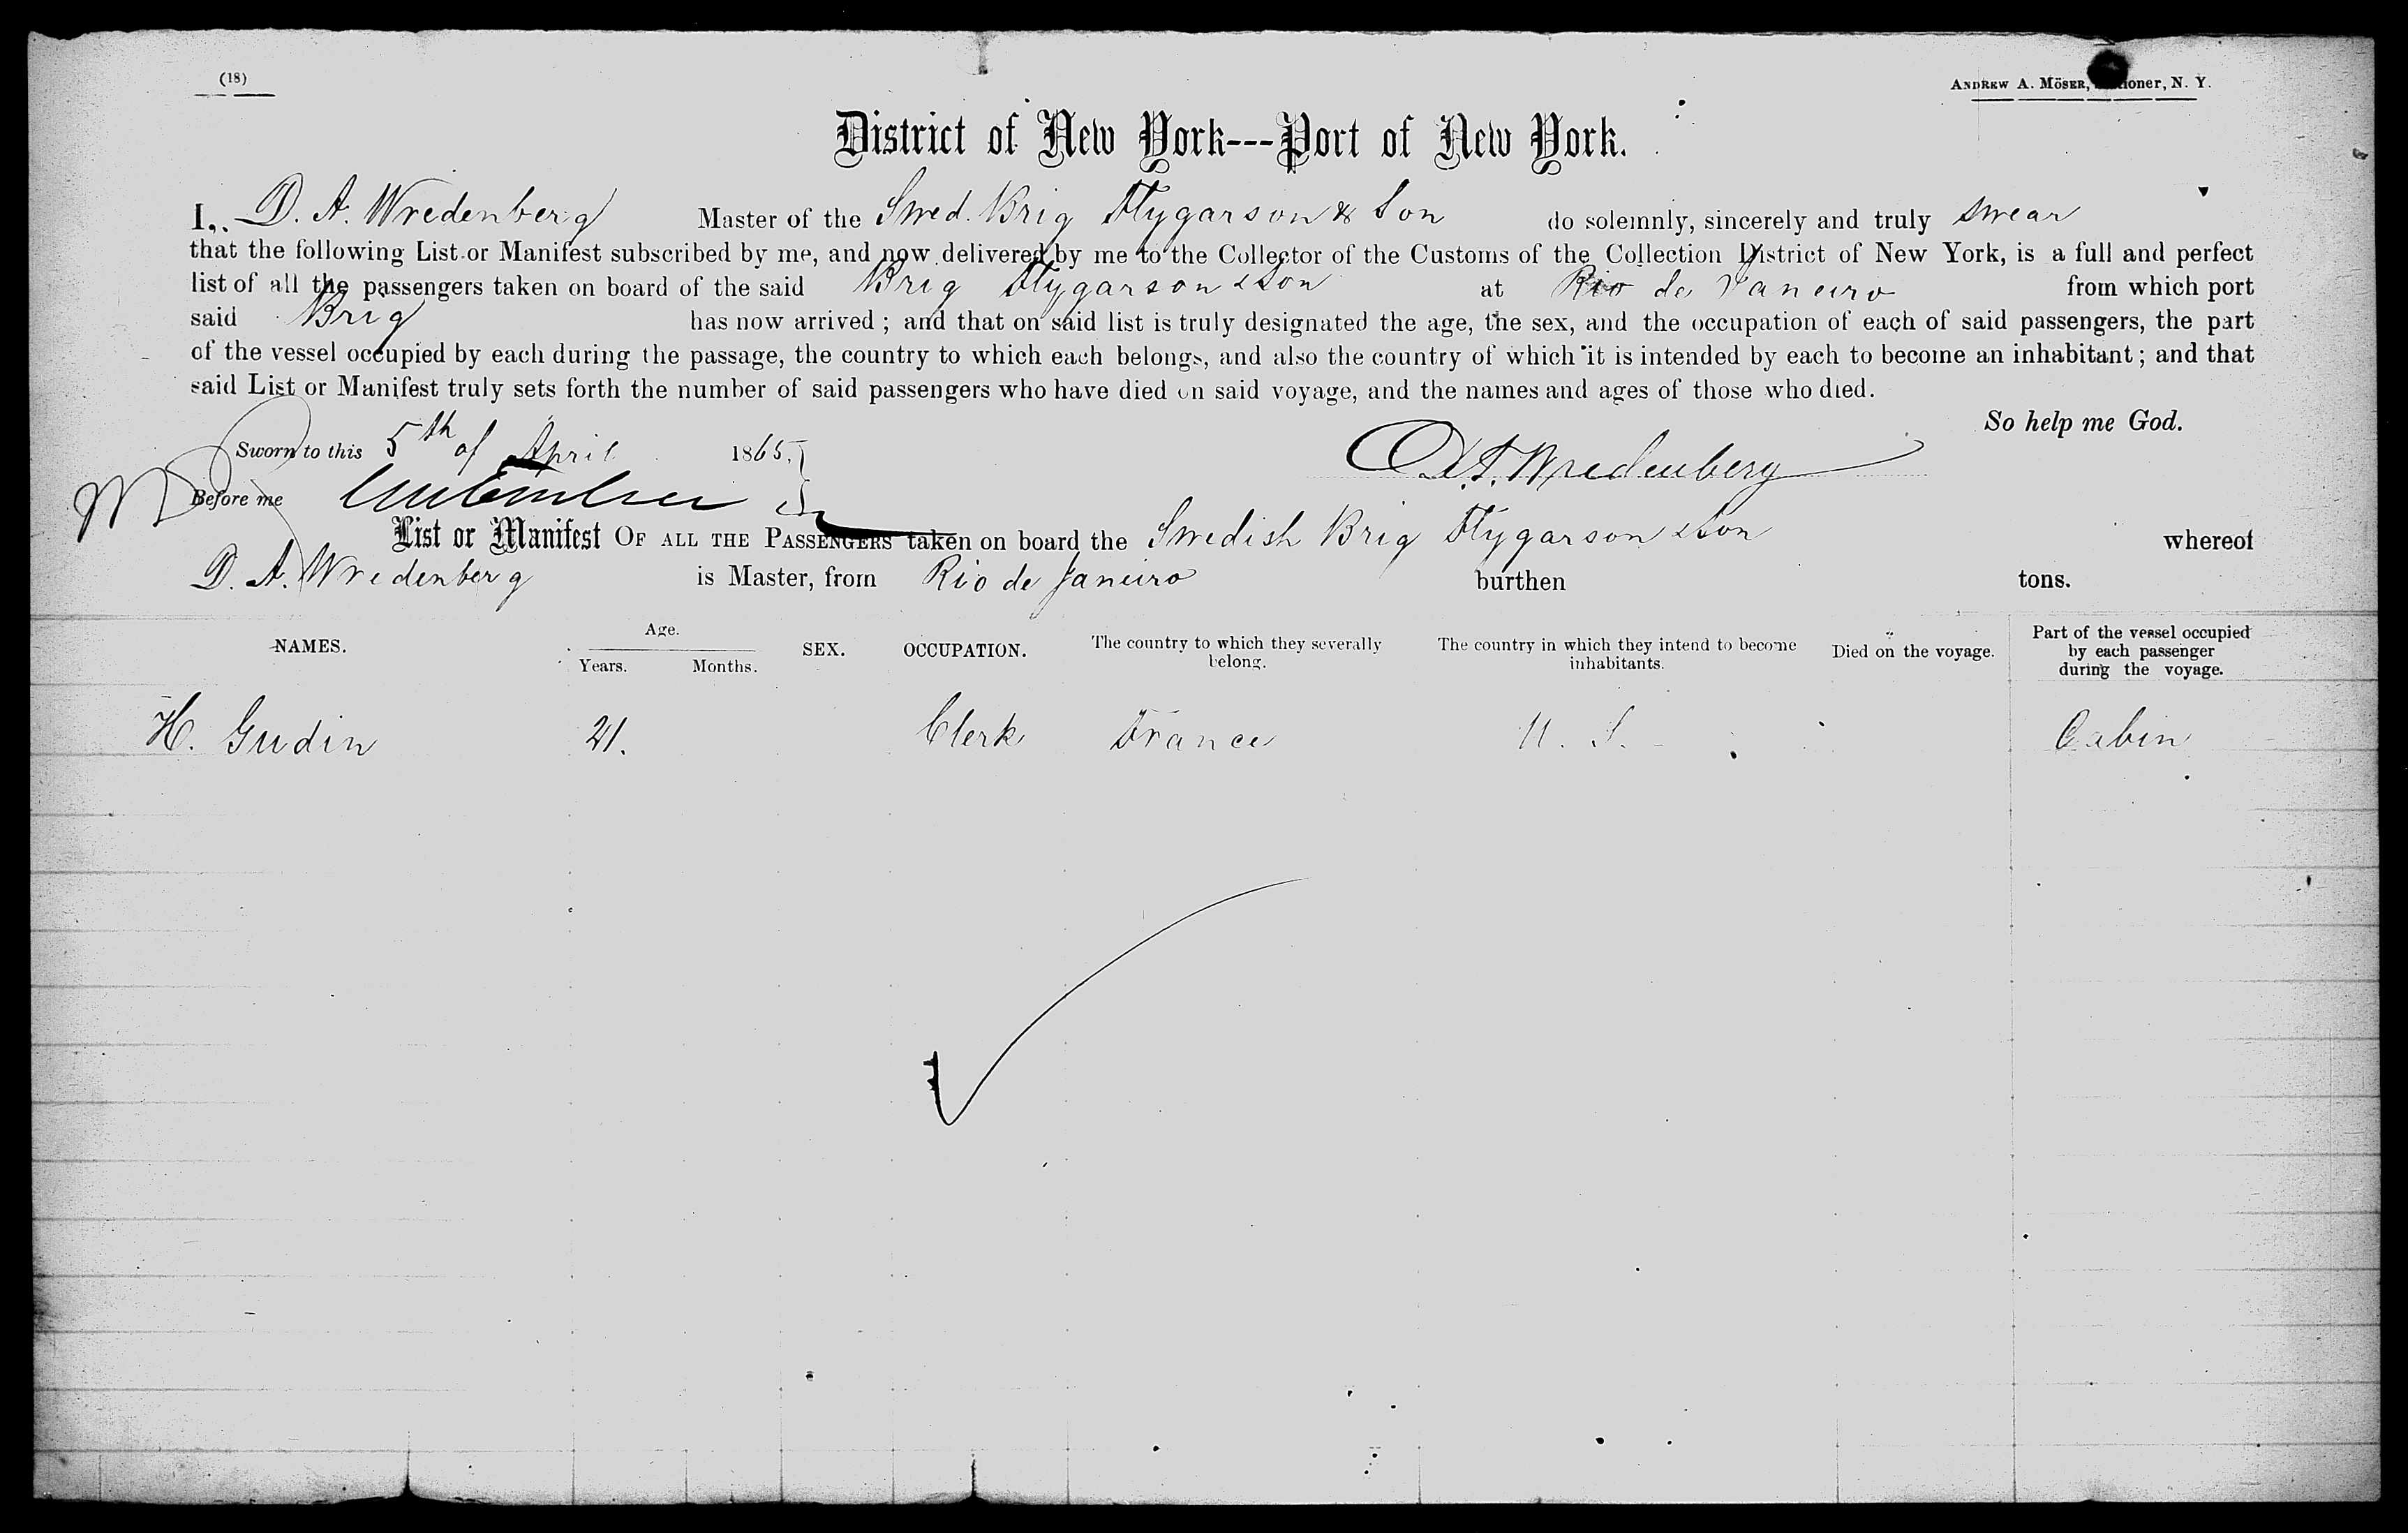 (18)
ANDREW A. MÖSER, Stationer, N. Y.
District of New York---Port of New York.
I, D. A. Wredenberg Master of the Swed. Brig Flygarson & Son do solemnly, sincerely and truly swear
that the following List or Manifest subscribed by me, and now delivered by me to the Collector of the Customs of the Collection District of New York, is a full and perfect
list of all the passengers taken on board of the said Brig Flygarson & Son at Rio de Janeiro from which port
said Brig has now arrived ; and that on said list is truly designated the age, the sex, and the occupation of each of said passengers, the part
of the vessel occupied by each during the passage, the country to which each belongs, and also the country of which it is intended by each to become an inhabitant ; and that
said List or Manifest truly sets forth the number of said passengers who have died on said voyage, and the names and ages of those who died.
So help me God.
Sworn to this 5th of April 1865.
D. A. Wredenberg
Before me
List or Manifest OF ALL THE PASSENGERS taken on board the Swedish Brig Flygarson & Son whereof
D. A. Wredenberg is Master, from Rio de Janeiro burthen tons.
NAMES. Age. Years. Months. SEX. OCCUPATION. The country to which they severally belong. The country in which they intend to become inhabitants. Died on the voyage. Part of the vessel occupied by each passenger during the voyage.
H. Gudin 21. Clerk France U. S. Cabin